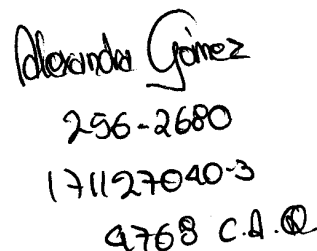 Alexandra Gómez
256-2680
171127040-3
4768 C.A.Q